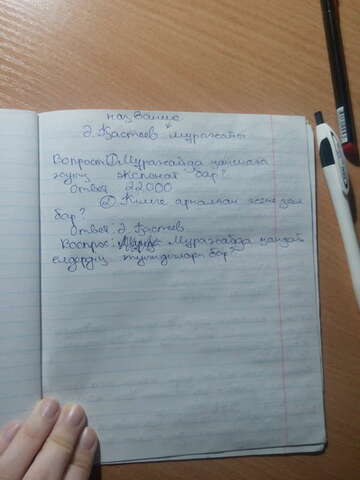 название
Ә. Қастеев мұражайы
Вопрос: ① Мұражайда қаншаға
жуық экспонат бар?
Ответ: 22.000
② Кімге арналған зал
бар?
Ответ: Ә. Қастеев
Вопрос: Мұражайда қандай
елдердің туындылары бар